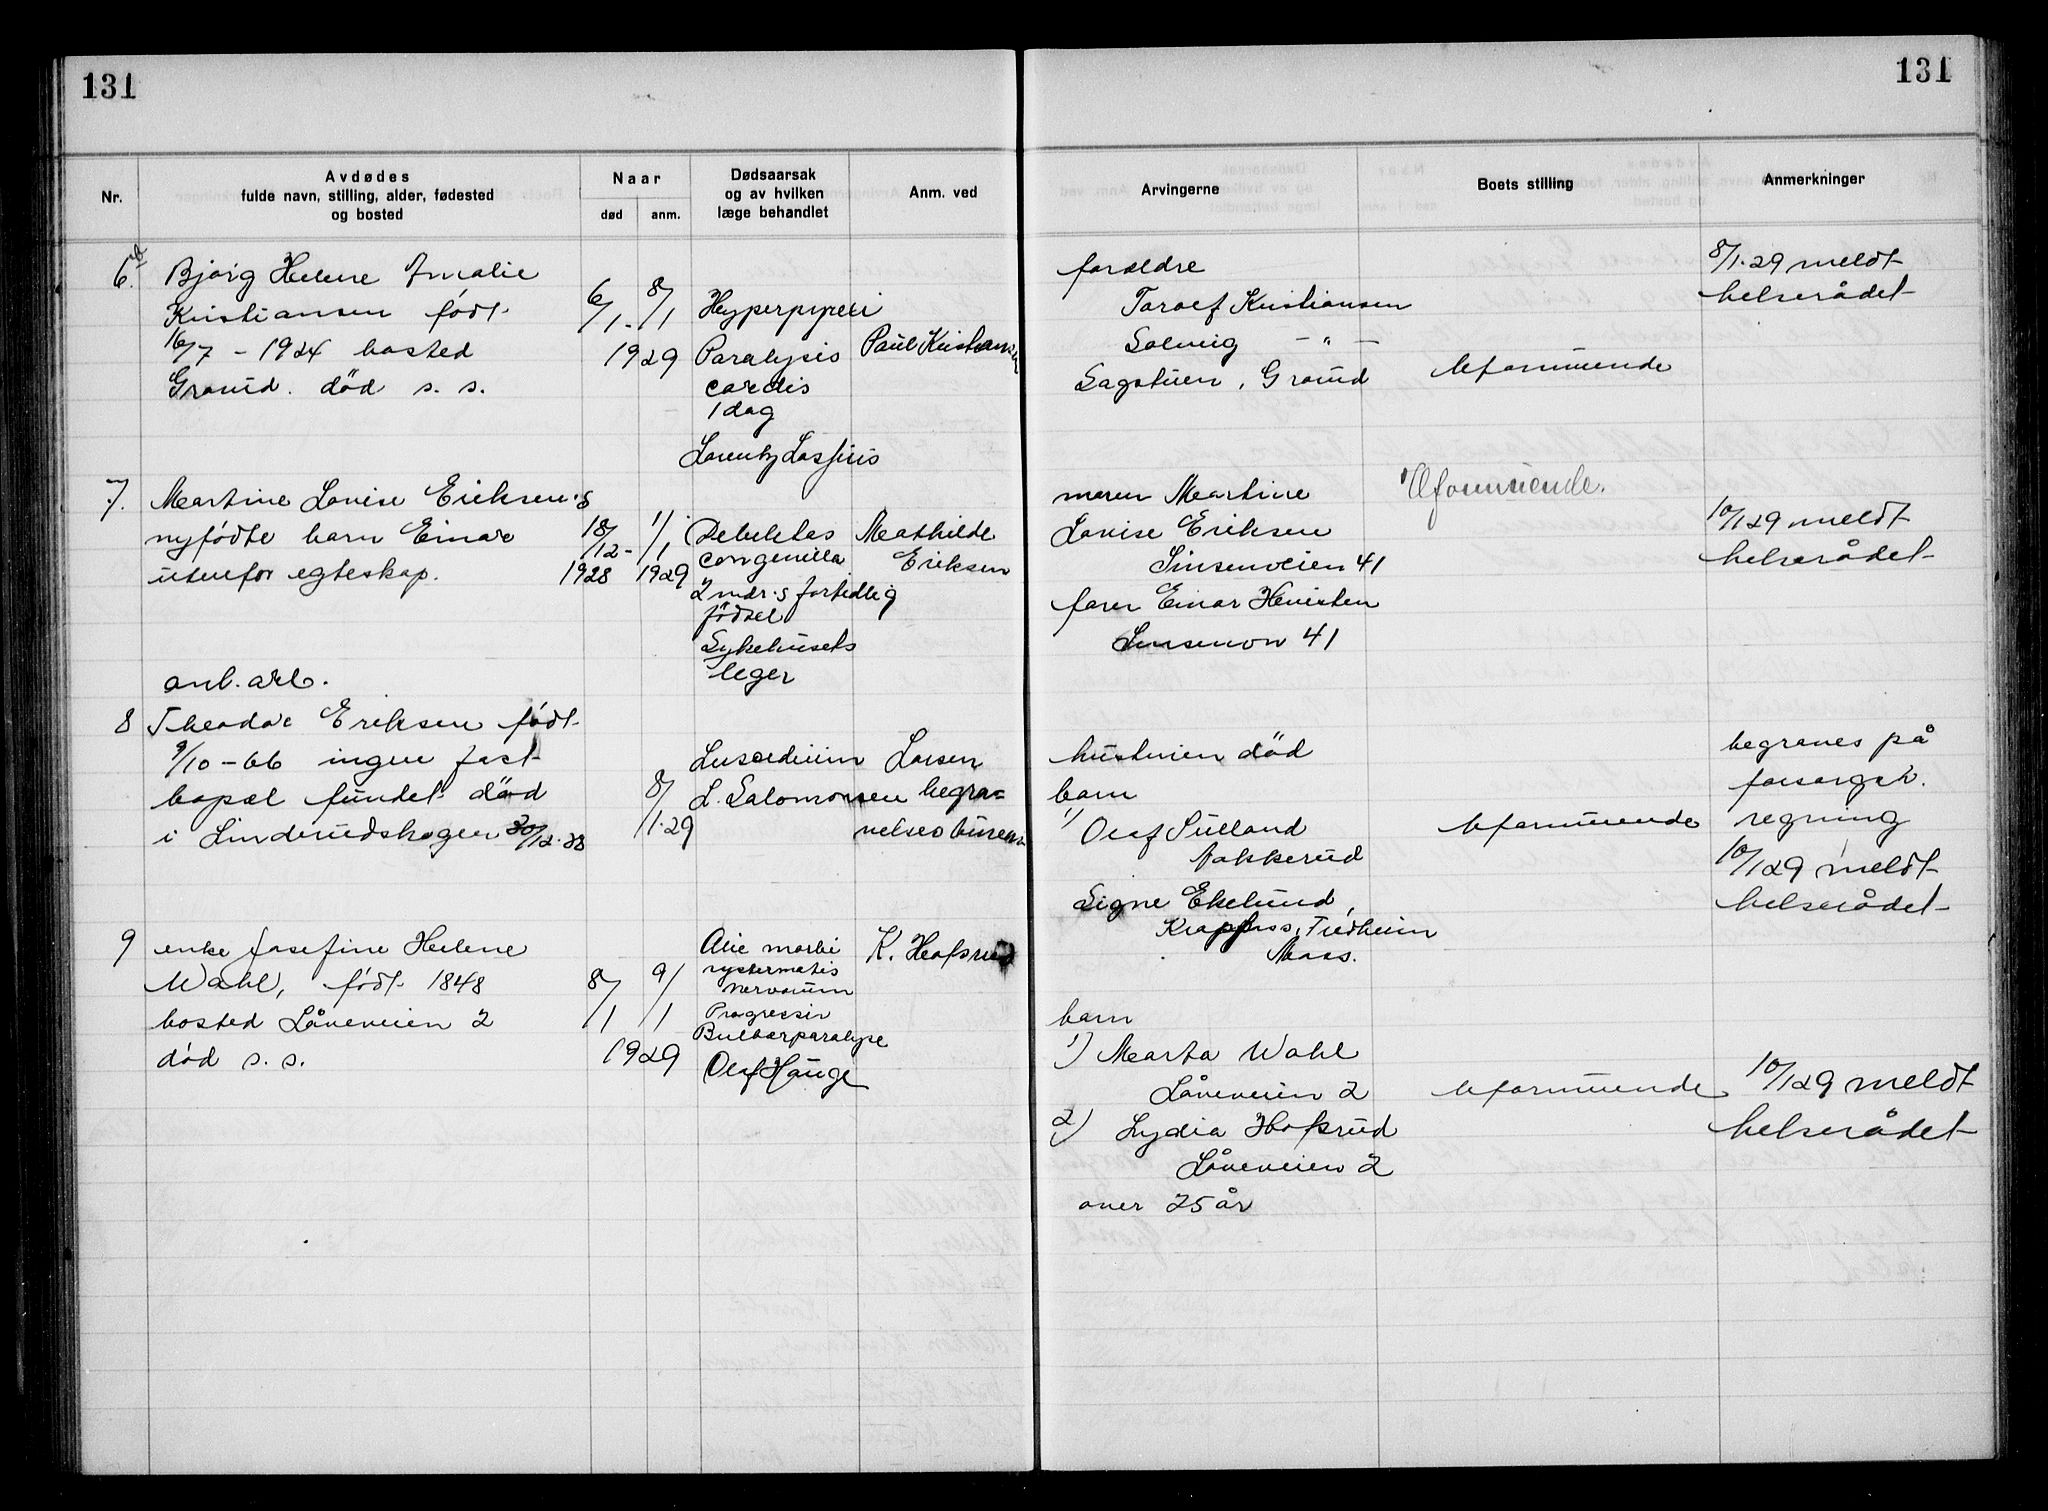 131
131
Nr.
Avdødes
fulde navn, stilling, alder, fødested
og bosted
Naar
død
anm.
Dødsaarsak
og av hvilken
læge behandlet
Anm. ved
Arvingerne
Boets stilling
Anmerkninger
6.
Bjørg Helene Amalie
Kristiansen født
16/7 - 1924 bosted
Grorud. død s. s.
6/1 - 8/1
1929
Hyperpyrexi
Paralysis
cordis
1 dag
Paul Kristiansen
forældre
Toralf Kristiansen
Solveig - " -
Sagstuen, Grorud
Uformuende
8/1.29 meldt
helserådet
7.
Martine Lovise Eriksen's
nyfødte barn Einar
utenfor egteskap.
18/12 -
1928
1/1
1929
Debilitas
congenita
2 mdr.s fortidlig
fødsel
Sykehusets
leger
Mathilde
Eriksen
moren Martine
Lovise Eriksen
Sinsenveien 41
faren Einar
Sinsenvn 41
Uformuende.
10/1 29 meldt
helserådet
8
anl. arb.
Theodor Eriksen født
9/10 - 66 ingen fast
bopæl fundet død
i Linderudskogen 30/12.28
8/1.29
Suicidium
L. Salomonsen
Larsen
begra=
velsesbureau
hustruen død
barn
1) Olaf Sulland
Bakkerud
Signe Ekelund,
Krapfoss, Fredheim
Moss.
Uformuende
begraves på
forsorgsv.
regning
10/1 29 meldt
helserådet
9
enke Josefine Helene
Wahl, født 1848
bosted Låveveien 2
død s. s.
8/1 9/1
1929
Alie morbi
systematis
nervorum
Progressiv
Bulbærparalyse
Olaf Hauge
K. Hofsrud
barn
1) Marta Wahl
Låveveien 2
2) Lydia Hofsrud
Låveveien 2
over 25 år
Uformuende
10/1 29 meldt
helserådet